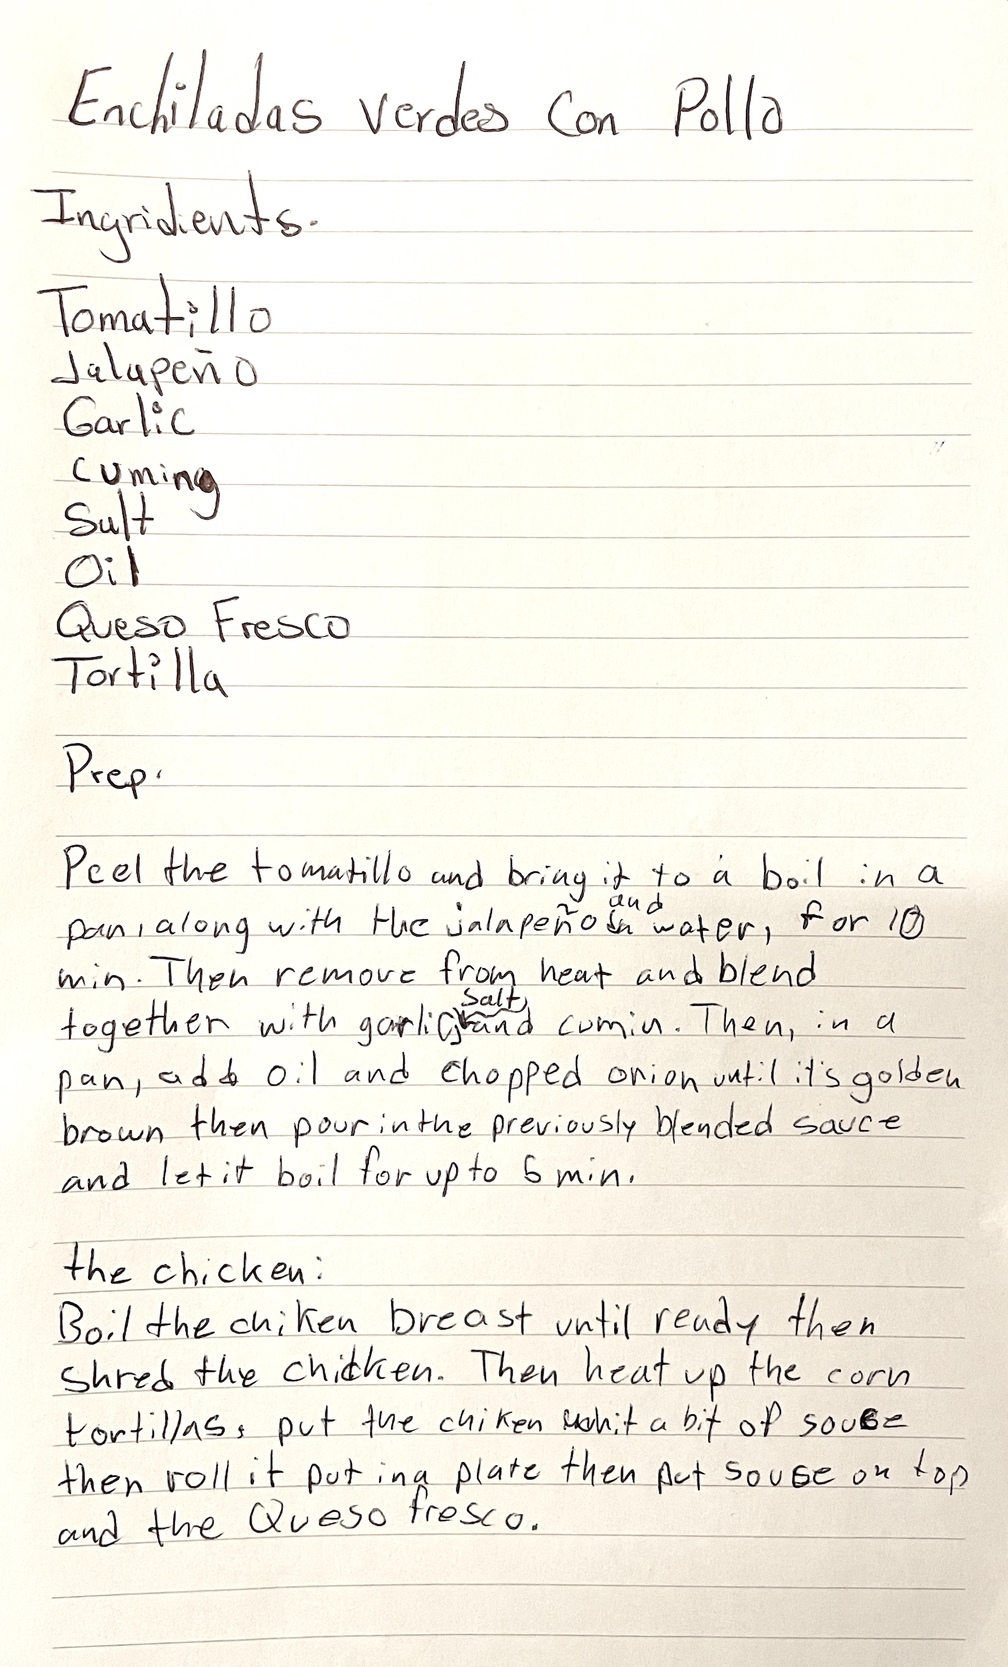 Enchiladas verdes Con Pollo
Ingridients.
Tomatillo
Jalapeño
Garlic
Cuming
Salt
Oil
Queso Fresco
Tortilla
Prep.
Peel the tomatillo and bring it to a boil in a
and
pan, along with the jalapeño in water, for 10
min. Then remove from heat and blend
Salt,
together with garlic, and cumin. Then, in a
pan, add oil and chopped onion until it's golden
brown then pour in the previously blended sauce
and let it boil for up to 5 min.
the chicken:
Boil the chiken breast until ready then
shred the chicken. Then heat up the corn
tortillas, put the chiken whit a bit of souse
then roll it put in a plate then put souse on top
and the Queso fresco.